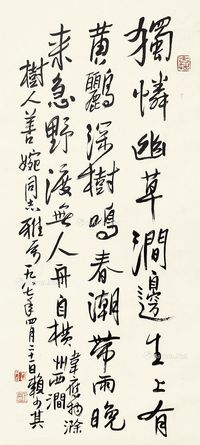 獨憐幽草澗邊生上有
黃鸝深樹鳴春潮帶雨晚
来急野渡無人舟自橫
韋應物滁州西澗
樹人善婉同志雅正
一九八七年四月二十日賴少其